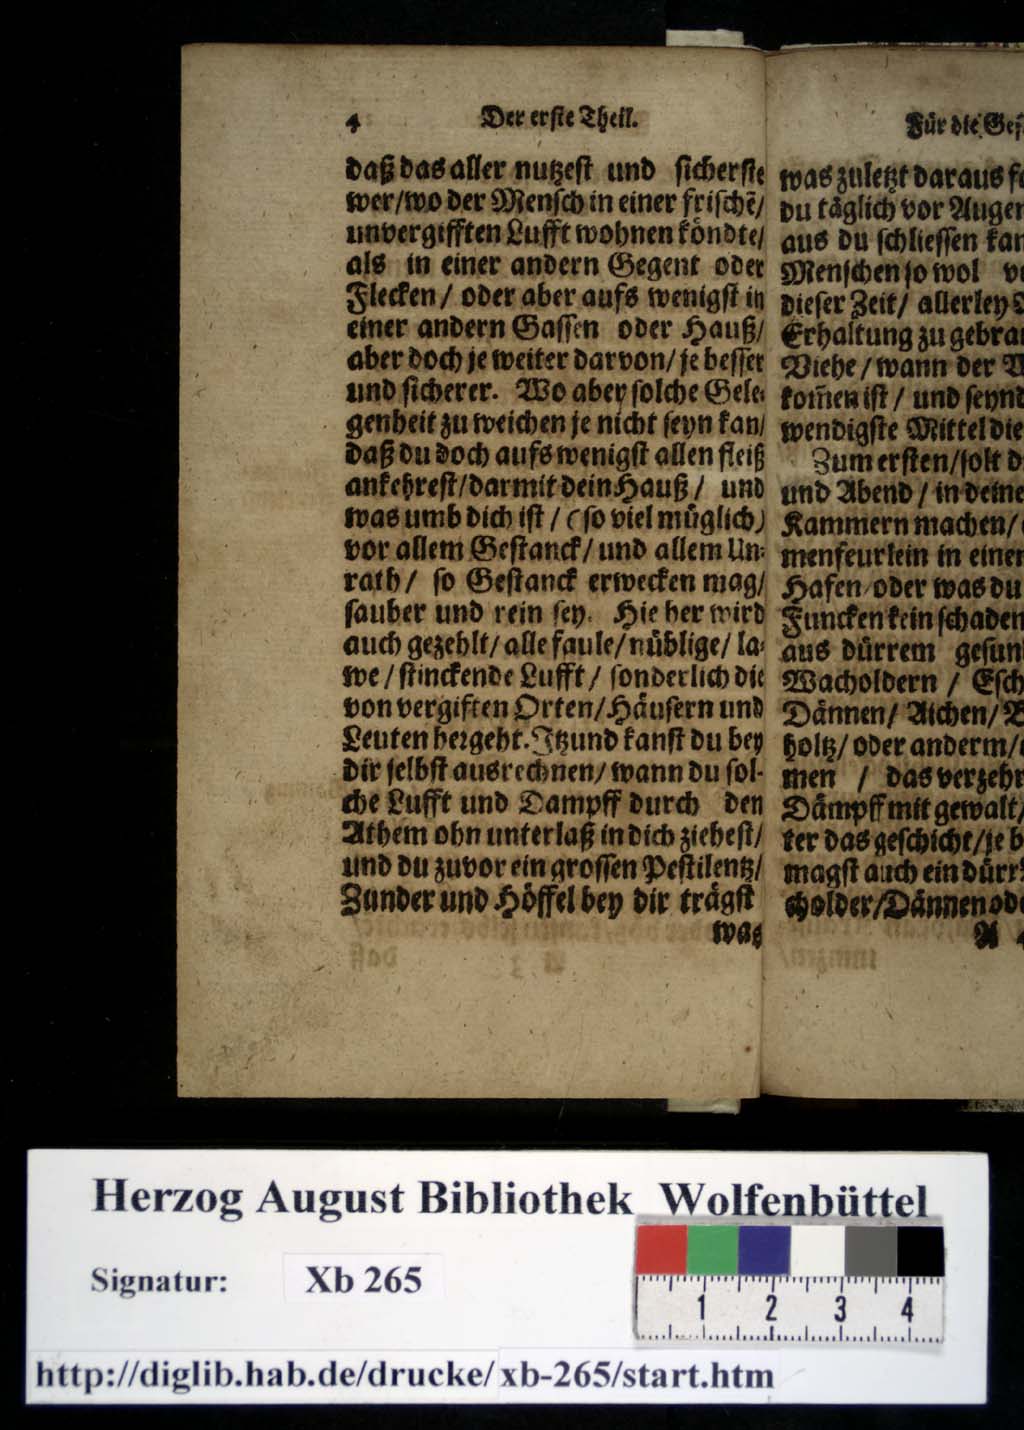 4 Der erste Theil.
daß das aller nutzest und sicherste
wer/wo der Mensch in einer frischē/
unvergifften Lufft wohnen köndte/
als in einer andern Gegent oder
Flecken/ oder aber aufs wenigst in
einer andern Gassen oder Hauß/
aber doch je weiter darvon/ je besser
und sicherer. Wo aber solche Gele-
genheit zu weichen je nicht seyn kan/
daß du doch aufs wenigst allen fleiß
ankehrest/darmit dein Hauß/ und
was umb dich ist/ (so viel müglich)
vor allem Gestanck/ und allem Un-
rath/ so Gestanck erwecken mag/
sauber und rein sey. Hie her wird
auch gezehlt/ alle faule/ nüblige/ la-
we/ stinckende Lufft/ sonderlich die
von vergiften Orten/ Häusern und
Leuten hergeht. Itzund kanst du bey
dir selbst ausrechnen/ wann du sol-
che Lufft und Dampff durch den
Athem ohn unterlaß in dich ziehest/
und du zuvor ein grossen Pestilentz/
Zunder und Höffel bey dir trägst
was
Für die Ges
was zuletzt daraus fo
du täglich vor Augen
aus du schliessen kan
Menschen so wol
dieser Zeit/ allerley
Erhaltung zu gebrau
Viehe/ wann der
kom̃en ist/ und seynd
wendigste Mittel die
Zum ersten/ solt d
und Abend/ in deine
Kammern machen/
menfeurlein in einer
Hafen/ oder was du
Funcken kein schaden
aus dürrem gesun
Wacholdern/ Esch
Dännen/ Aichen/
holtz/ oder anderm/
men / das verzehr
Dämpff mit gewalt/
ter das geschicht/ je b
magst auch ein dürr
cholder/Dännen ode
A
Herzog August Bibliothek Wolfenbüttel
Signatur: Xb 265
1 2 3 4
http://diglib.hab.de/drucke/xb-265/start.htm